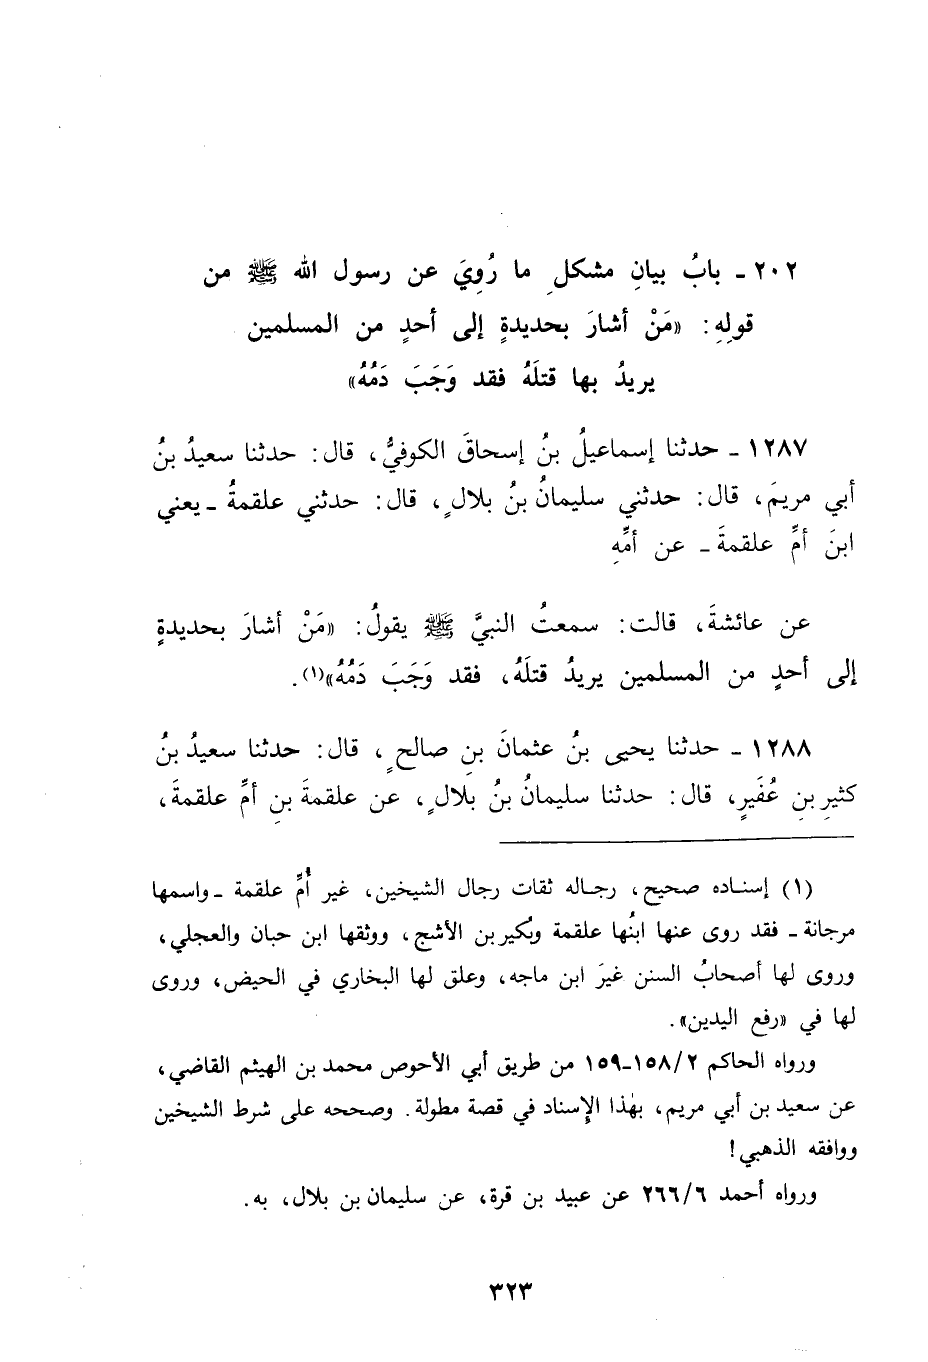 ٢٠٢ ـ بابُ بيانِ مشكلِ ما رُوِيَ عن رسول الله ﷺ من
قولِهِ: «مَنْ أشارَ بحديدةٍ إلى أحدٍ من المسلمين
يريدُ بها قتلَهُ فقد وَجَبَ دَمُهُ»
١٢٨٧ ـ حدثنا إسماعيلُ بنُ إسحاقَ الكوفيُّ، قال: حدثنا سعيدُ بنُ
أبي مريمَ، قال: حدثني سليمانُ بنُ بلالٍ، قال: حدثني علقمةُ ـ يعني
ابنَ أمِّ علقمةَ ـ عن أمِّهِ
عن عائشةَ، قالت: سمعتُ النبيَّ ﷺ يقولُ: «مَنْ أشارَ بحديدةٍ
إلى أحدٍ من المسلمين يريدُ قتلَهُ، فقد وَجَبَ دَمُهُ»(١).
١٢٨٨ ـ حدثنا يحيى بنُ عثمانَ بنِ صالحٍ، قال: حدثنا سعيدُ بنُ
كثيرِ بنِ عُفَيرٍ، قال: حدثنا سليمانُ بنُ بلالٍ، عن علقمةَ بنِ أمِّ علقمةَ،
(١) إسناده صحيح، رجاله ثقات رجال الشيخين، غير أُمِّ علقمة ـ واسمها
مرجانة ـ فقد روى عنها ابنُها علقمة وبُكير بن الأشج، ووثقها ابن حبان والعجلي،
وروى لها أصحابُ السنن غيرَ ابن ماجه، وعلق لها البخاري في الحيض، وروى
لها في «رفع اليدين».
ورواه الحاكم ١٥٨/٢ـ١٥٩ من طريق أبي الأحوص محمد بن الهيثم القاضي،
عن سعيد بن أبي مريم، بهٰذا الإِسناد في قصة مطولة. وصححه على شرط الشيخين
ووافقه الذهبي!
ورواه أحمد ٢٦٦/٦ عن عبيد بن قرة، عن سليمان بن بلال، به.
٣٢٣